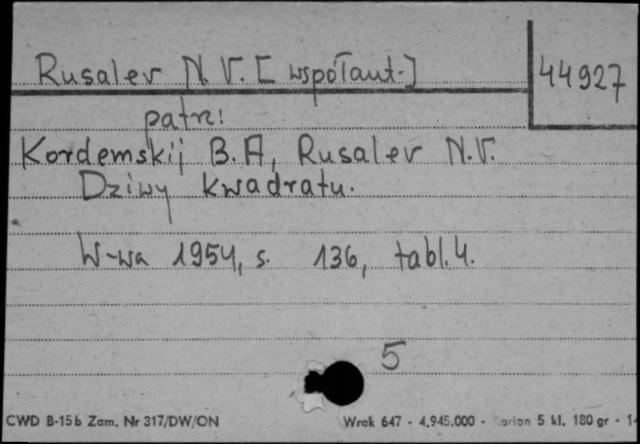 Rusalev N.V. [współaut.]
44927
patrz!
Kordemskij B.A, Rusalev N.V.
Dziwy kwadratu.
W-wa 1954, s. 136, tabl.4.
5
CWD B-15b Zam. Nr 317/DW/ON
Wrak 647 - 4.945.000 - 5 kl. 180 gr - 1